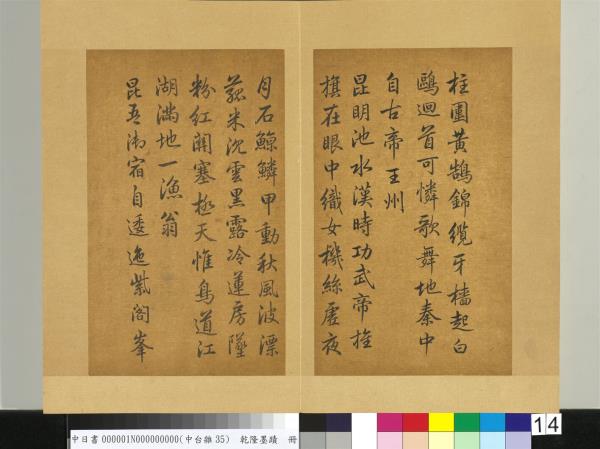 柱圍黃鵠錦纜牙檣起白
鷗迴首可憐歌舞地秦中
自古帝王州
昆明池水漢時功武帝旌
旗在眼中織女機絲虛夜
月石鯨鱗甲動秋風波漂
菰米沈雲黑露冷蓮房墜
粉紅關塞極天惟鳥道江
湖滿地一漁翁
昆吾御宿自逶迤紫閣峯
中日書 000001N000000000(中台雜 35) 乾隆墨蹟 冊
14